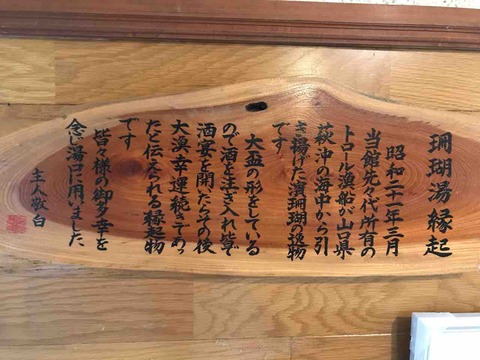 珊瑚湯縁起
昭和二十一年三月
当館先々代所有の
トロール漁船が山口県
萩沖の海中から引
き揚げた濱珊瑚の逸物
です
大盃の形をしている
ので酒を注ぎ入れ皆で
酒宴を開たらその後
大漁幸運続きであっ
たと伝えられる縁起物
です
皆々様の御多幸を
念じ湯口に用いました
主人敬白